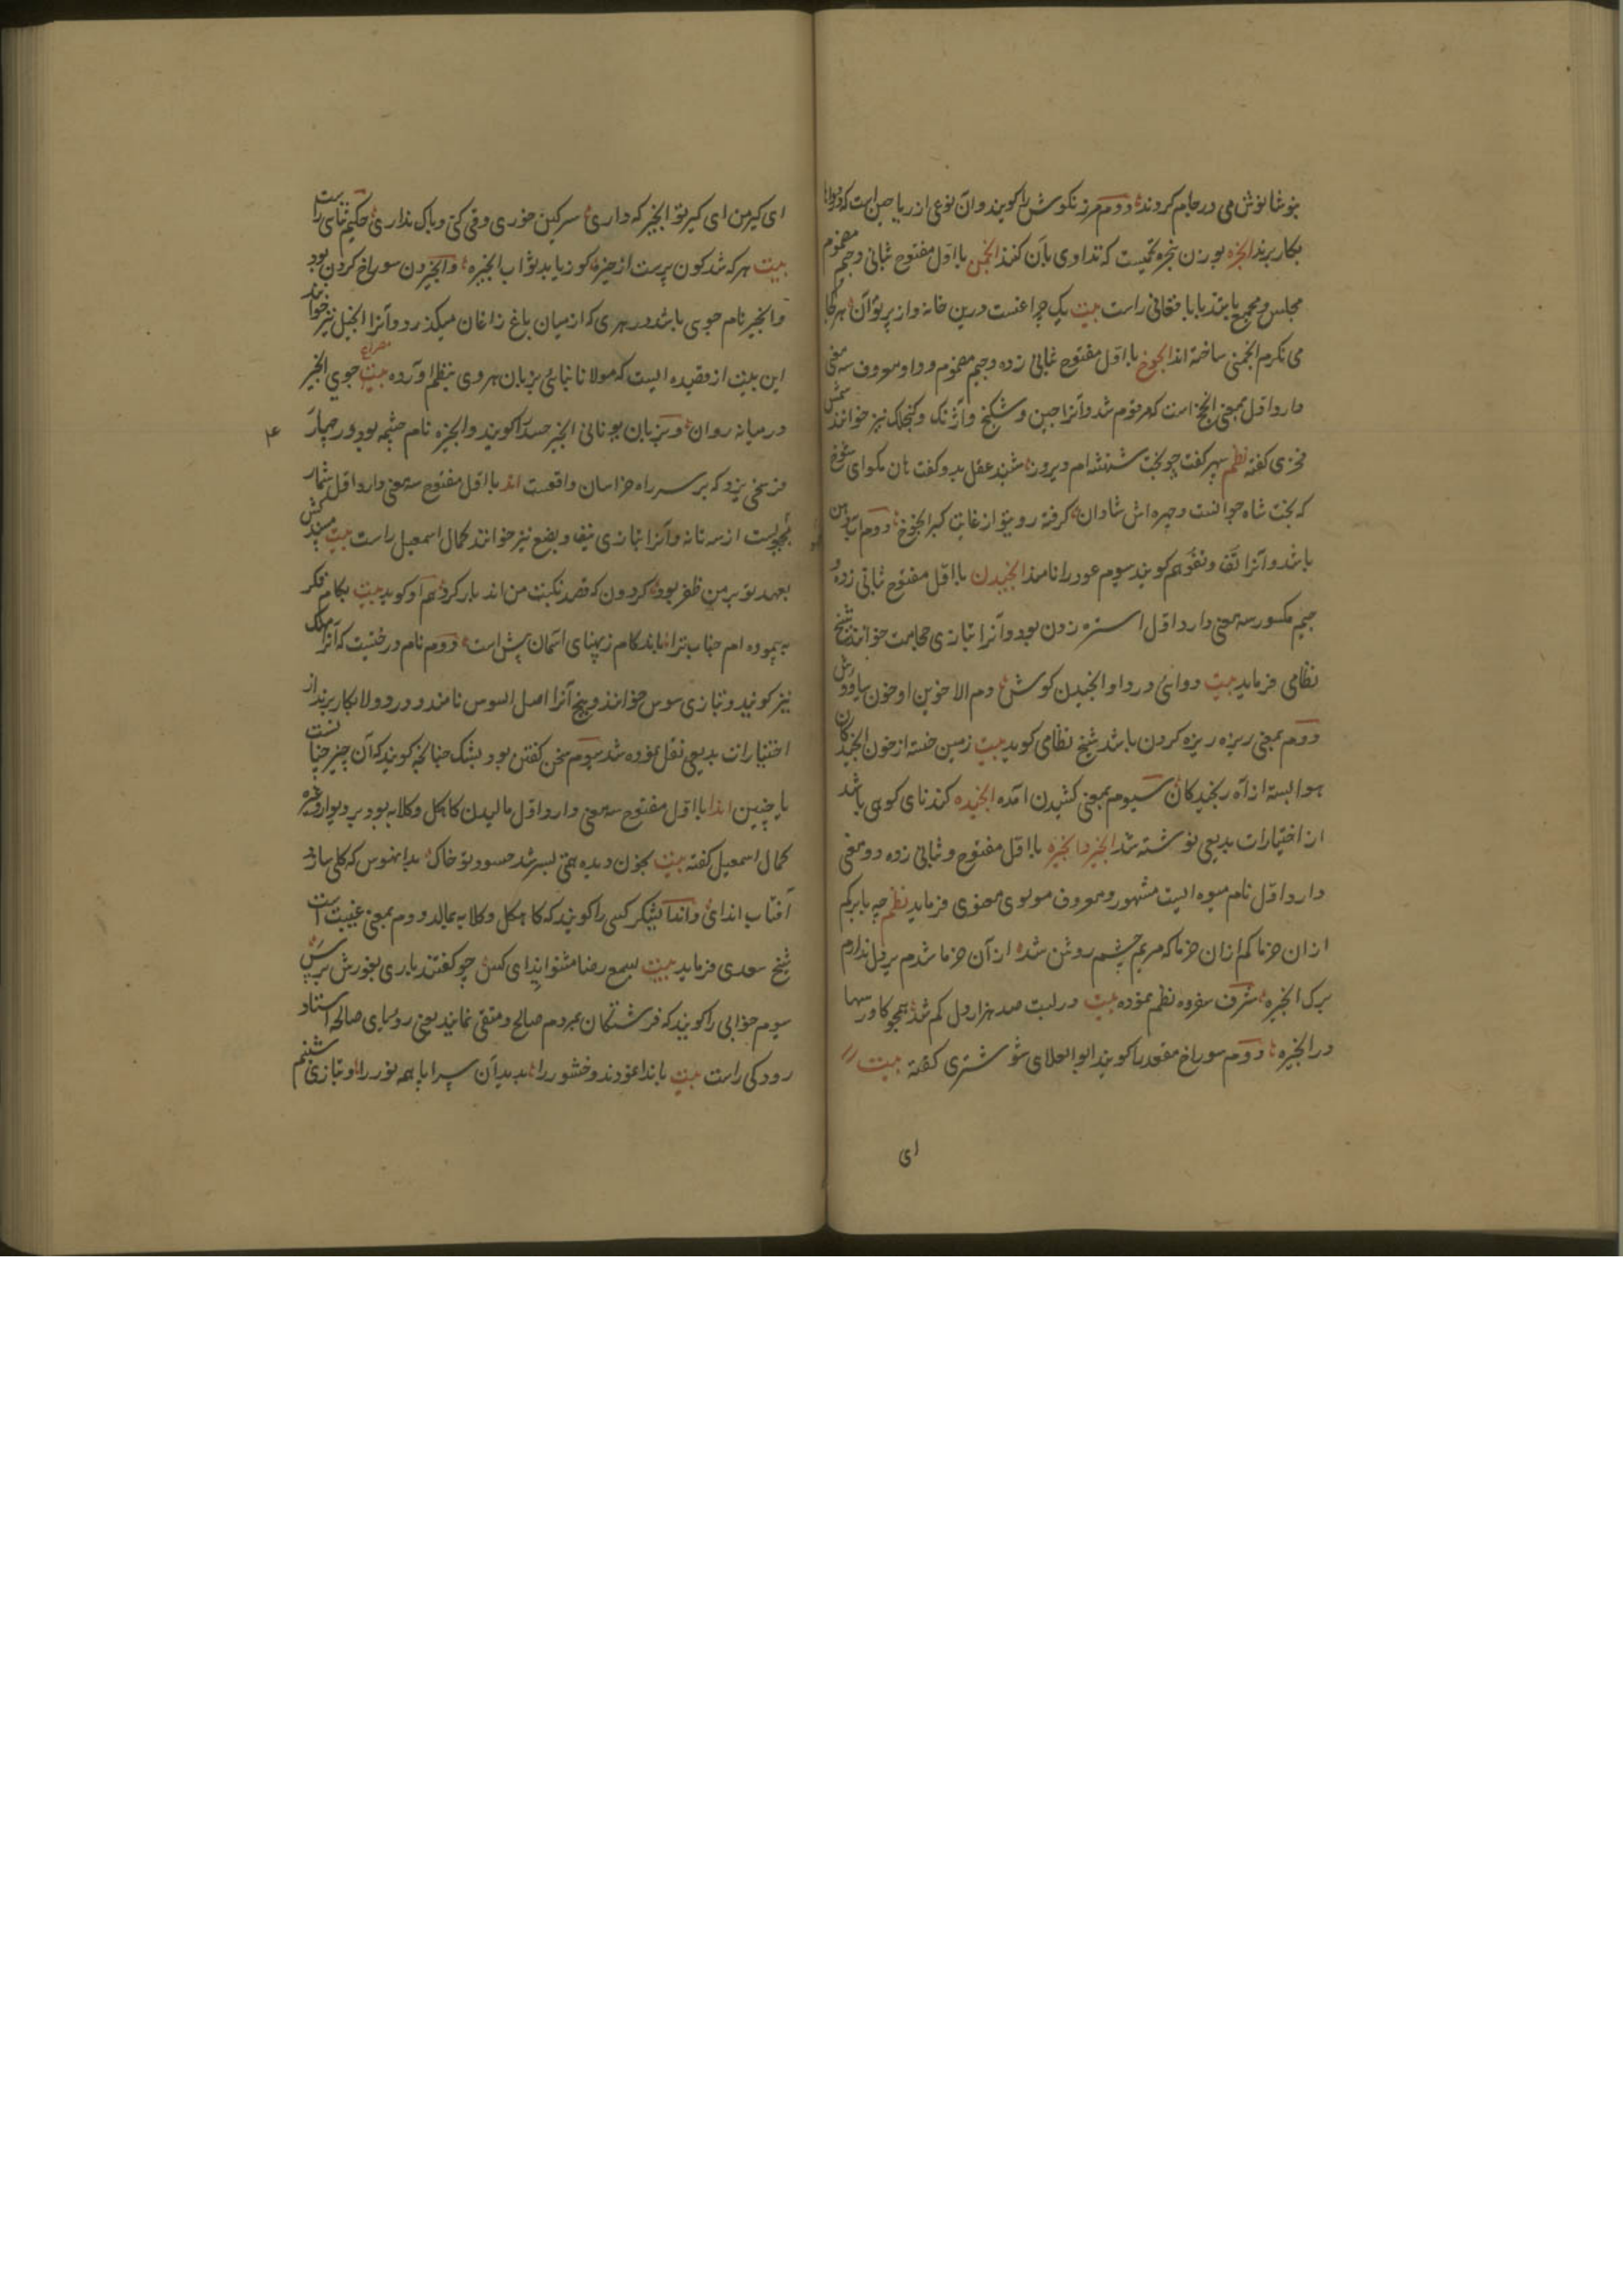 بنوشانوش می در جام کردند دوم مرزنکوش را کویند و ان نوعی از ریاحین است که در دواها
بکار برند انجره بوزن پنجره تخمیست که تداوی بان کنند انجمن با اول مفتوح بثانی و جیم مضموم
مجلس و مجمع باشد بابا فغانی راست بیت یک چراغست درین خانه و از پرتو آن هر کجا
می نکرم انجمنی ساخته اند انجوخ با اول مفتوح بثانی زده و جیم مضموم و واو معروف سه معنی
دارد اول بمعنی انجخ است که مرقوم شد و آنرا چین و شکنج و آژنک و کنجلک نیز خوانند شمس
فخری کفته نظم سپهر کفت چو بخت شهنشه ام دیروز شنید عقل بدو کفت هان مکوای شوخ
که بخت شاه جوانست و چهره اش شادان کرفته روی تو از غایت کبر انجوخ دوم آب دهن
باشد و آنرا تف و تفو هم کویند سوم عود را نامند انجیدن با اول مفتوح ثانی زده و
جیم مکسور سه معنی دارد اول استره زدن بود و آنرا بتازی حجامت خوانند شیخ
نظامی فرماید بیت دوائی درد او انجیدن کوش دم الاخوین او خون سیاوش
دوم بمعنی ریزه ریزه کردن باشد شیخ نظامی کوید بیت زمین خسته از خون انجیدکان
هوا بسته از آه رنجیدکان سیوم بمعنی کشیدن آمده انجیده کندنای کوهی باشد
از اختیارات بدیعی نوشته شد انجیر و انجیره با اول مفتوح و ثانی زده دو معنی
دارد اول نام میوه ایست مشهور و معروف مولوی معنوی فرماید نظم چه بابرکم
از ان خرما کم ازان خرما که مریم چشم روشن شد از آن خرما شدم پر دل ندارم
برک انجیره شرف سفروه نظم نموده بیت در لبت صد هزار دل کم شد همچو کاورسها
در انجیره دوم سوراخ مقعد را کویند ابوالعلای شوشتری کفته بیت
ای
ای کیر من ای کیر تو انجیر که داری سرکین خوری و قی کنی و باک نداری حکیم ثنای راست
بیت هر که شد کون پرست از حیز کو زیابد ثواب انجیره و انجیردن سوراخ کردن بود
و انجیر نام جوی باشد در هری که از میان باغ زاغان میکذرد و آنرا انجیل نیز خوانند
این بیت از قصیده ایست که مولانا بنائی بزبان هروی بنظم آورده مصراع بیت جوی انجیر
در میانه روان و بزبان یونانی انجیر حسد را کویند و انجیره نام چشمه بود در چهار
فرسخی یزد که بر سر راه خراسان واقعست اند با اول مفتوح سه معنی دارد اول شمار
مجهولست از سه تا نه و آنرا بتازی نیف و بضع نیز خوانند کمال اسمعیل راست بیت
بعهد تو بر من ظفر بود کردون که قصد نکبت من اند بار کرد هم او کوید بیت بکام فکر
به پیموده ام جناب ترا باند کام ز پهنای آسمان پیش است دوم نام درختیست که آنرا مهک
نیز کویند و بتازی سوس خوانند و بیخ آنرا اصل السوس نامند و در دواها بکار برند از
اختیارات بدیعی نقل نموده شد سیوم سخن کفتن بود بشک چنانچه کویند که آن چیز چنانست
یا چنین اندا با اول مفتوح سه معنی دارد اول مالیدن کاهکل و کلابه بود بر دیوار و غیره
کمال اسمعیل کفته بیت بخون دیده همی بسرشد حسود تو خاک بدانهوس که کلی سازد
آفتاب اندای و اندا یشکر کسی را کویند که کاهکل و کلابه بمالد دوم بمعنی غیبت است
شیخ سعدی فرماید بیت بسمع رضا مشنو ایذای کس چو کفتند باری بغورش برس
سیوم خوابی را کویند که فرشتکان بمردم صالح و متقی نمایند یعنی رؤیای صالحه استاد
رودکی راست بیت باندا نمودند وخشور را بدید آن سراپا همه نور را و بتازی شبنم